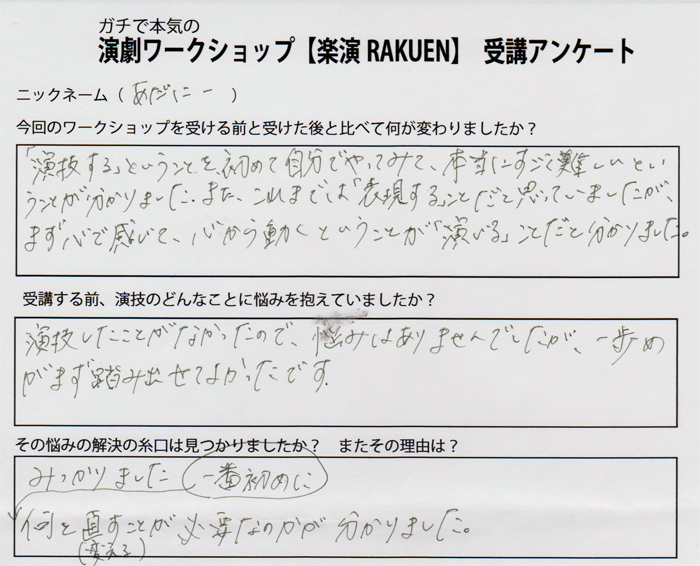 ガチで本気の
演劇ワークショップ【楽演 RAKUEN】 受講アンケート
ニックネーム（ あだにー ）
今回のワークショップを受ける前と受けた後と比べて何が変わりましたか？
「演技する」ということを初めて自分でやってみて、本当にすごく難しいとい
うことが分かりました。また、これまでは「表現する」ことだと思っていましたが、
まず心で感じて、心から動くということが「演じる」ことだと分かりました。
受講する前、演技のどんなことに悩みを抱えていましたか？
演技したことがなかったので、悩みはありませんでしたが、一歩め
がまず踏み出せてよかったです.
その悩みの解決の糸口は見つかりましたか？ またその理由は？
みつかりました 一番初めに
何を直すことが必要なのかが分かりました。
(変える)